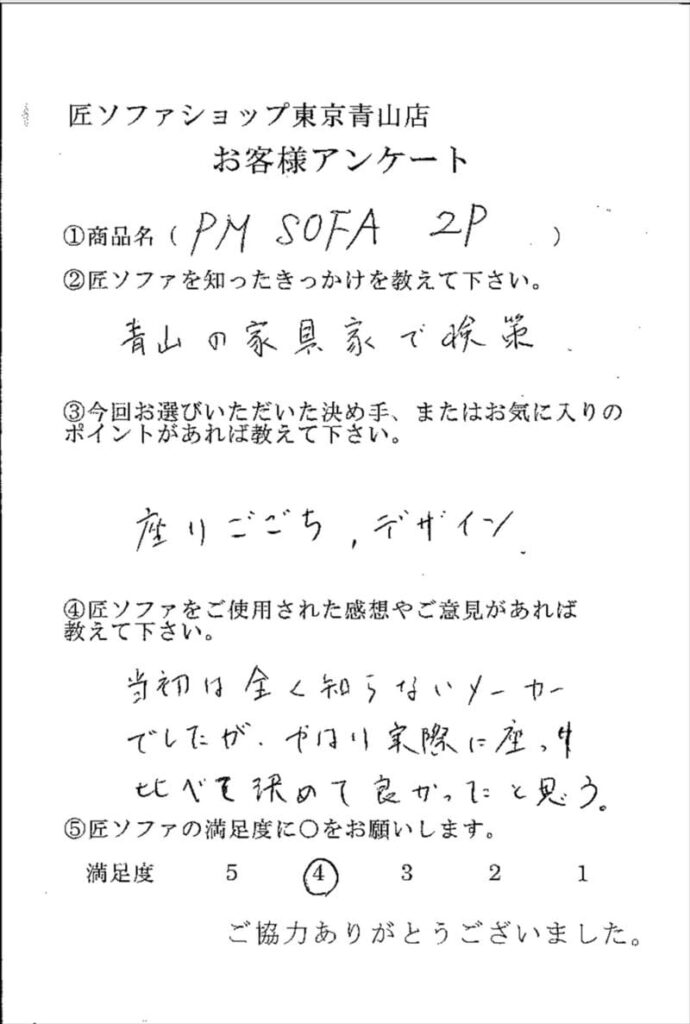 匠ソファショップ東京青山店
お客様アンケート
①商品名（ PM SOFA 2P ）
②匠ソファを知ったきっかけを教えて下さい。
青山の家具家で検策.
③今回お選びいただいた決め手、またはお気に入りの
ポイントがあれば教えて下さい。
座りごごち,デザイン.
④匠ソファをご使用された感想やご意見があれば
教えて下さい。
当初は全く知らないメーカー
でしたが、やはり実際に座っ
比べを決めて良かったと思う。
⑤匠ソファの満足度に○をお願いします。
満足度 5 4 3 2 1
ご協力ありがとうございました。